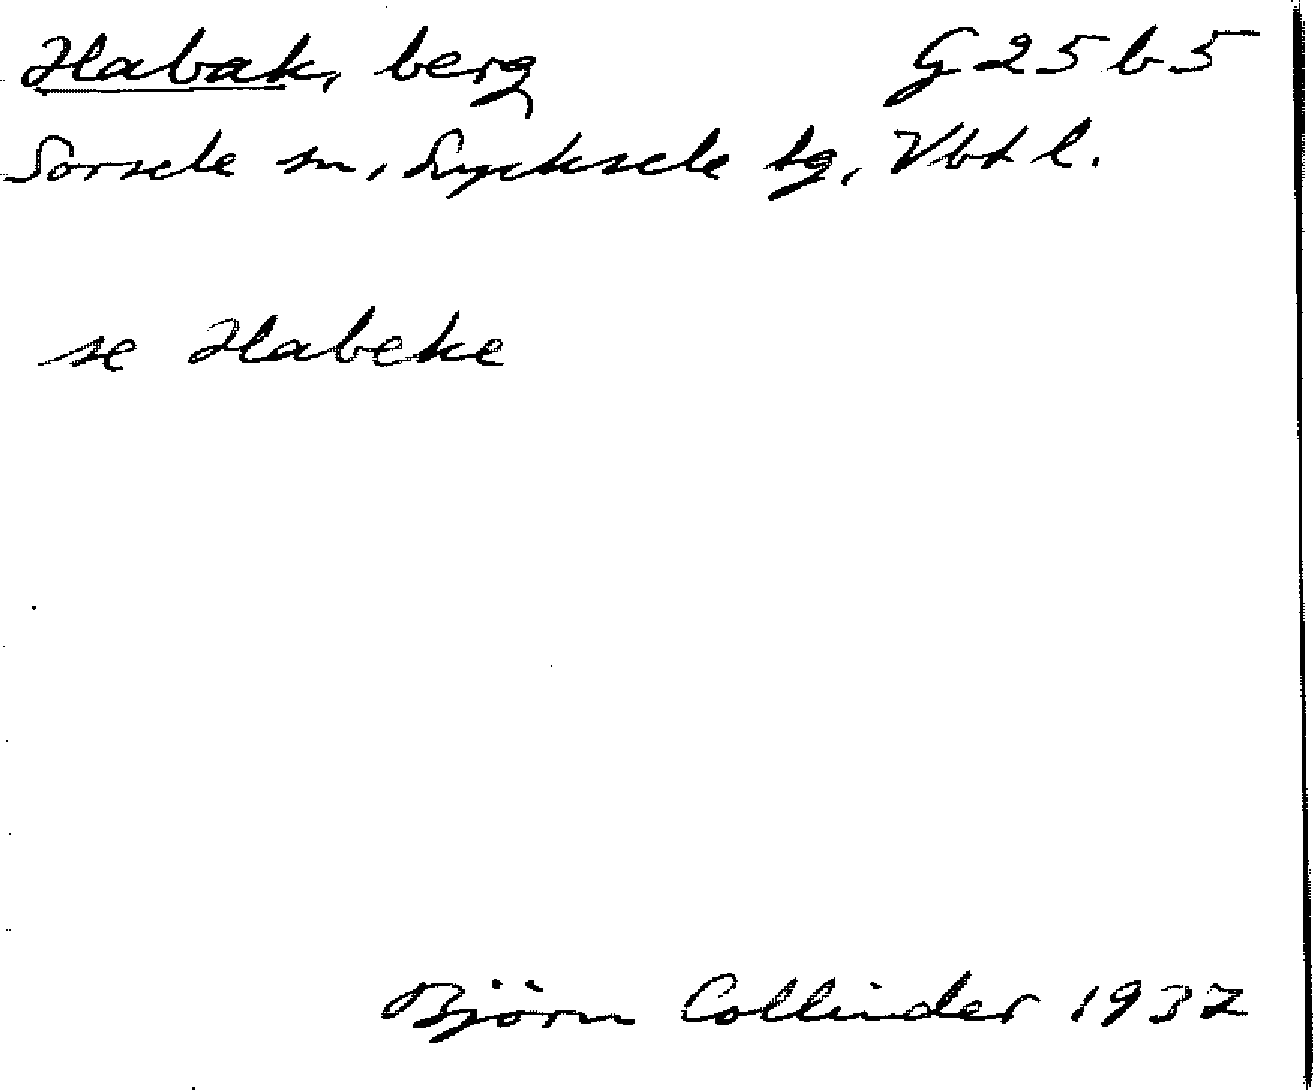 Habak, berg G 25 b 5
Sorsele sn, Lycksele tg, Vbt l.
se Habeke
Björn Collinder 1937